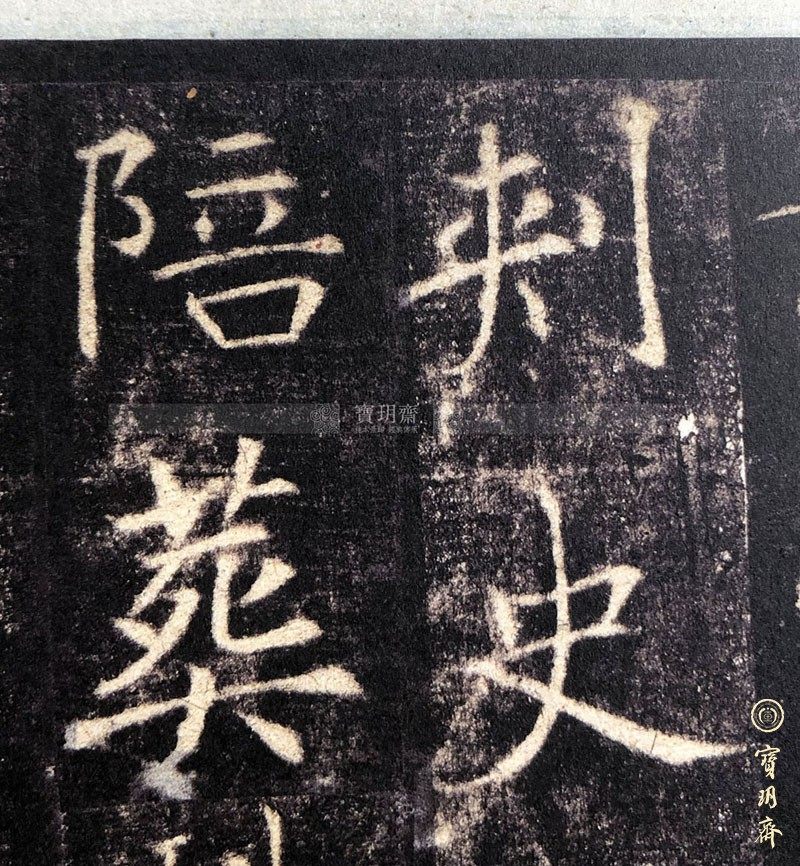 刾史
陪葬
寶玥齋
寶玥齋